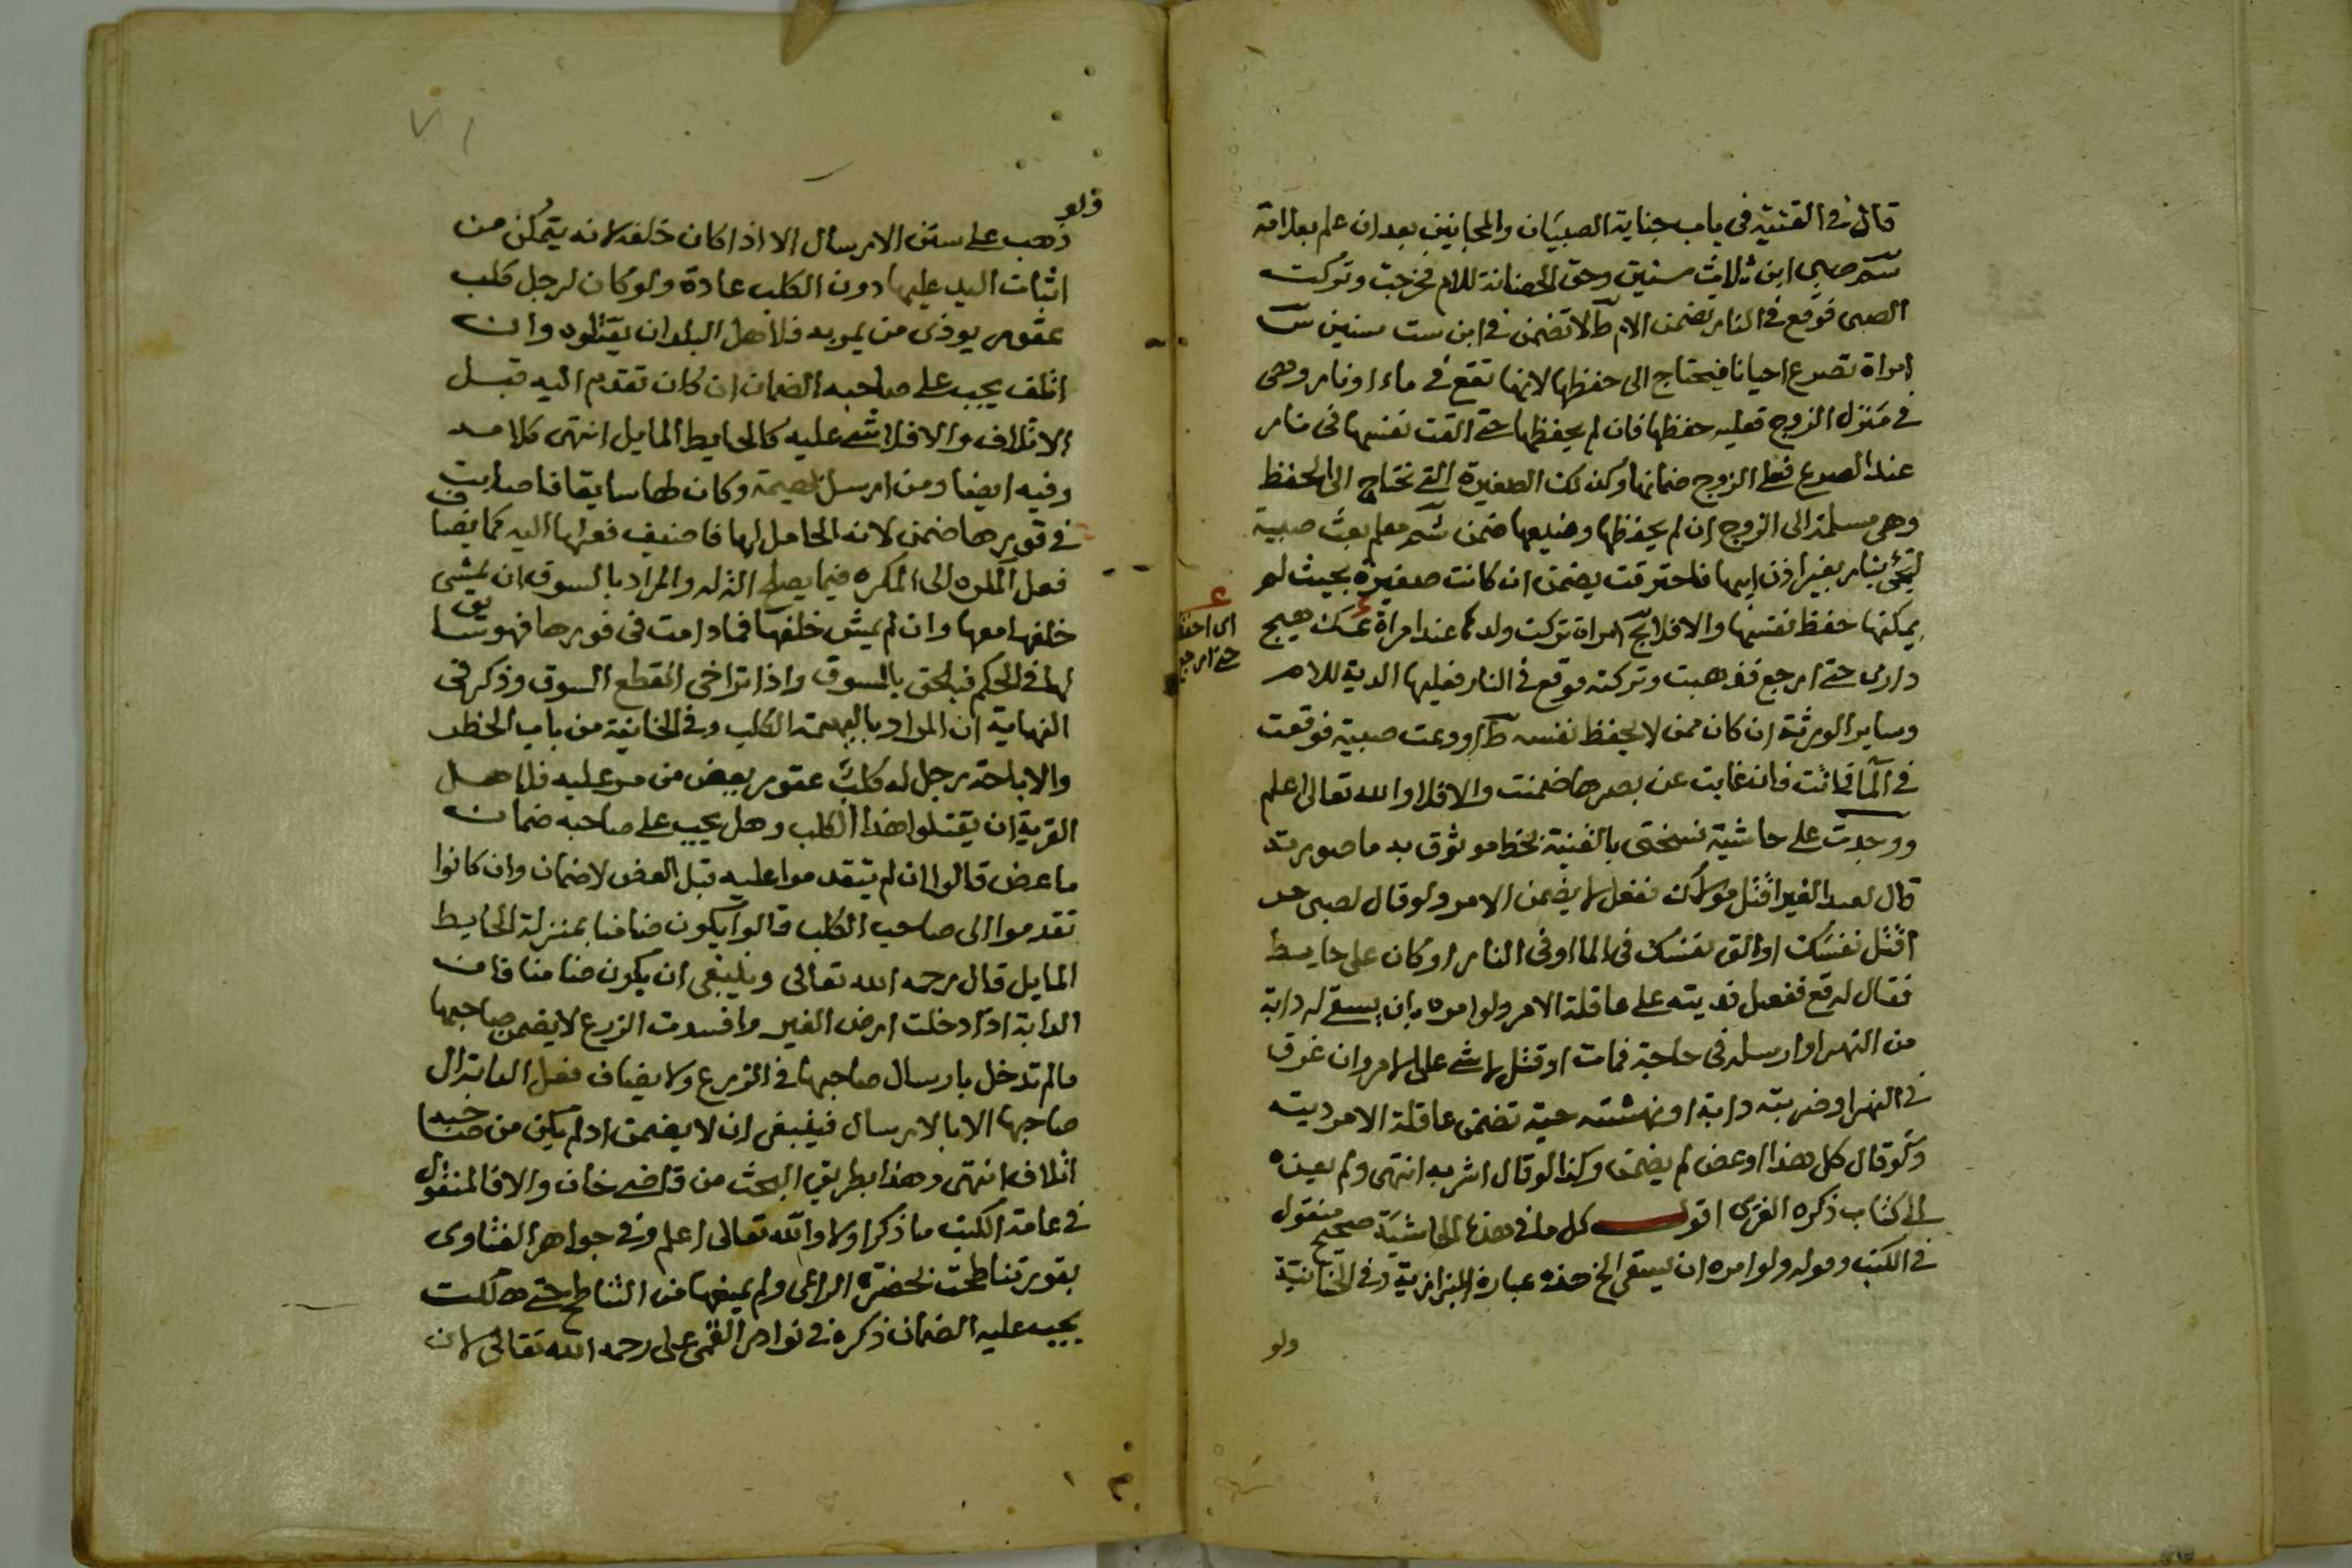 قال في القنية في باب جناية الصبيان والمجانين بعد ان علم بعلامة
سم صبي ابن ثلاث سنين وحق الحضانة للام فخرجت وتركت
الصبي فوقع في النار تضمن الام ط لا تضمن في ابن ست سنين
امراة تصرع احيانا فيحتاج الى حفظها لانها تقع في ماء او نار وهى
في منزل الزوج فعليه حفظها فان لم يحفظها حتى القت نفسها في نار
عند الصرع فعلى الزوج ضمانها وكذلك الصغيرة التي تحتاج الى الحفظ
وهى مسلمة الى الزوج ان لم يحفظها وضيعها ضمن معلم بعث صبية
لتجئ بنار بغير اذن ابيها فاحترقت يضمن ان كانت صغيرة بحيث لم
يمكنها حفظ نفسها والا فلا امراة تركت ولدها عند امراة
دارى حتى ارجع فذهبت وتركته فوقع في النار فعليها الدية للام
وساير الورثة ان كان ممن لا يحفظ نفسه ط اودعت صبية فوقعت
في الما فماتت فان غابت عن بصرها ضمنت والا فلا والله تعالى اعلم
ووجدت على حاشية نسختى بالقنية بخط موثوق به ما صورته
قال لعبد الغير اقتل مولاك ففعل لا يضمن الامر ولو قال لصبى حر
اقتل نفسك او الق نفسك في الما او في النار او كان على حايط
فقال له قع ففعل فديته على عاقلة الامر ولو امره بان يسقى له دابة
من النهر او ارسله في حاجة فمات او قتل لا شئ على الامر وان غرق
في النهر او ضربته دابة او نهشته حية تضمن عاقلة الامر ديته
ولو قال كل هذا او عض لم يضمن وكذا لو قال اشربه انتهى ولم يعزه
الى كتاب ذكره الغزى اقول كل ما في هذه الحاشية صحيح منقول
في الكتب وقوله ولو امره ان يسقى الخ هذه عبارة البزازية وفي الخانية
ولو
اى احفظ
حتى ارجع
ولو
ذهب على سنن الارسال الا اذا كان خلفه لانه يتمكن من
اثبات اليد عليها دون الكلب عادة ولو كان لرجل كلب
عقور يوذى من يمر به فلاهل البلد ان يقتلوه وان
اتلف يجب على صاحبه الضمان ان كان تقدم اليه قبل
الاتلاف والا فلا شئ عليه كالحايط المايل انتهى كلامه
وفيه ايضا ومن ارسل بهيمة وكان لها سايقا فاصابت
في فورها ضمن لانه الحامل لها فاضيف فعلها اليه كما يضاف
فعل المكره الى المكره فيما يصلح الة له والمراد بالسوق ان يمشى
خلفها معها وان لم يمش خلفها فما دامت في فورها فهو سايق
لها في الحكم فيلحق بالسوق واذا تراخى انقطع السوق وذكر في
النهاية ان المراد بالبهيمة الكلب وفي الخانية من باب الحظر
والاباحة رجل له كلب عقور يعض من مر عليه فلاهل
القرية ان يقتلوا هذا الكلب وهل يجب على صاحبه ضمان
ما عض قالوا ان لم يتقدموا عليه قبل العض لا ضمان وان كانوا
تقدموا الى صاحب الكلب قالوا يكون ضامنا بمنزلة الحايط
المايل قال رحمه الله تعالى وينبغى ان يكون ضامنا فان
الدابة اذا دخلت ارض الغير وافسدت الزرع لا يضمن صاحبها
مالم تدخل بارسال صاحبها في الزرع ولا يضاف فعل الدابة الى
صاحبها الا بالارسال فينبغى ان لا يضمن اذ لم يكن من صاحبه
اتلاف انتهى وهذا بطريق البحث من قاضى خان والا فالمنقول
في عامة الكتب ما ذكر اولا والله تعالى اعلم وفي جواهر الفتاوى
بقور تناطحت بحضرة الراعى ولم يمنعها من التناطح حتى هلكت
يجب عليه الضمان ذكره في نوادر رحمه الله تعالى لان